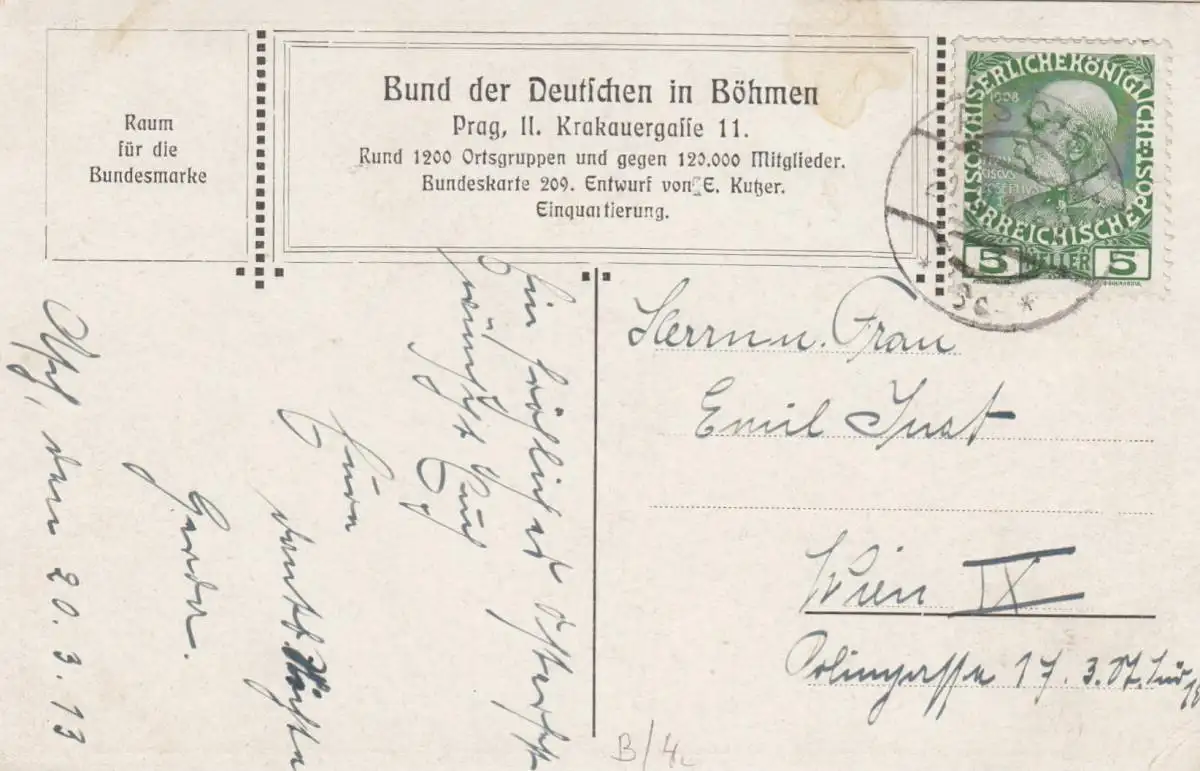 Raum
für die
Bundesmarke
Bund der Deutschen in Böhmen
Prag, II. Krakauergasse 11.
Rund 1200 Ortsgruppen und gegen 120.000 Mitglieder.
Bundeskarte 209. Entwurf von E. Kutzer.
Einquartierung.
KAISERLICHEKÖNIGLICHE
ÖSTERREICHISCHE POST
1908
5 HELLER 5
Ein fröhliches Osterfest
wünscht Euch
Eure
dankb.
Gerda.
den 20. 3. 13
Herrn u. Frau
Emil Just
Wien IX
17. 3.
B/4